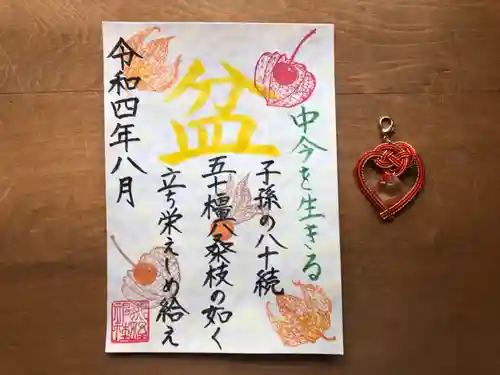 中今を生きる
盆
子孫の八十続
五十橿八桑枝の如く
立ち栄えしめ給え
令和四年八月